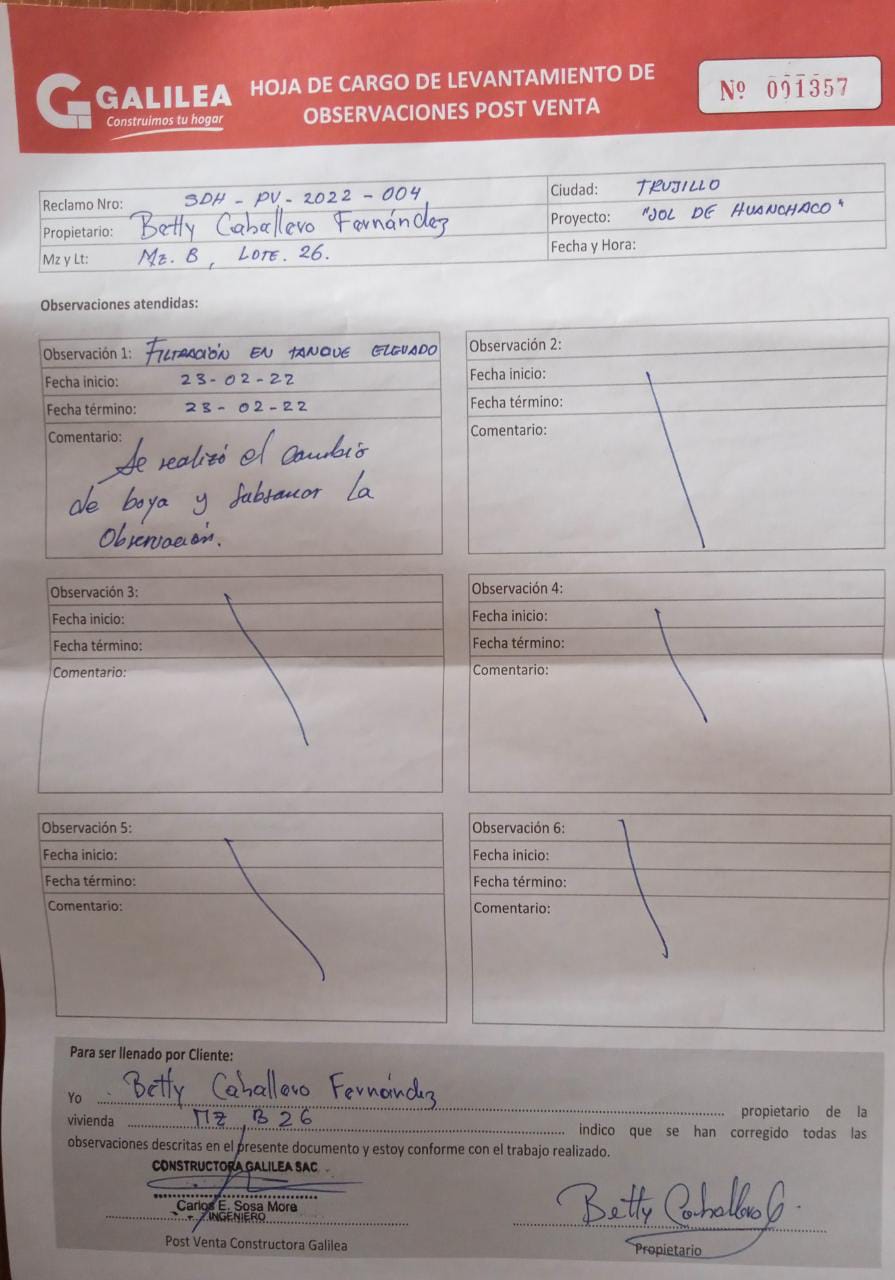 GALILEA
Construimos tu hogar
HOJA DE CARGO DE LEVANTAMIENTO DE
OBSERVACIONES POST VENTA
Nº 001357
Reclamo Nro: SDH - PV - 2022 - 004
Propietario: Betty Caballero Fernández
Mz y Lt: Mz. B, LOTE. 26.
Ciudad: TRUJILLO
Proyecto: "SOL DE HUANCHACO"
Fecha y Hora:
Observaciones atendidas:
Observación 1: FILTRACIÓN EN TANQUE ELEVADO
Fecha inicio: 23-02-22
Fecha término: 23-02-22
Comentario: Se realizó el cambio
de boya y subsanar la
Observación.
Observación 2:
Fecha inicio:
Fecha término:
Comentario:
Observación 3:
Fecha inicio:
Fecha término:
Comentario:
Observación 4:
Fecha inicio:
Fecha término:
Comentario:
Observación 5:
Fecha inicio:
Fecha término:
Comentario:
Observación 6:
Fecha inicio:
Fecha término:
Comentario:
Para ser llenado por Cliente:
Yo Betty Caballero Fernández propietario de la
vivienda MZ B 26 indico que se han corregido todas las
observaciones descritas en el presente documento y estoy conforme con el trabajo realizado.
CONSTRUCTORA GALILEA SAC
Carlos E. Sosa More
INGENIERO
Post Venta Constructora Galilea
Betty Caballero
Propietario